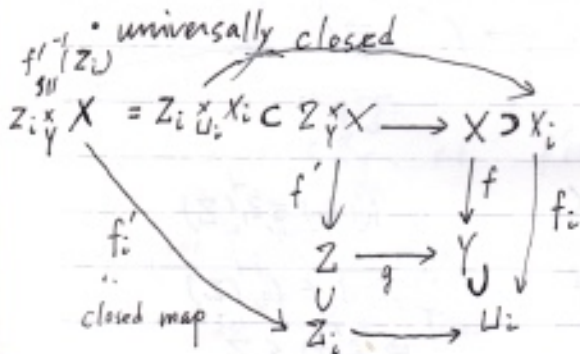 • universally closed
f'⁻¹(Z_i)
≅
Z_i ×_Y X = Z_i ×_{U_i} X_i ⊂ Z ×_Y X ⟶ X ⊃ X_i
f' f f_i
f_i'
Z ⟶ Y
g
∪ ∪
closed map
Z_i ⟶ U_i